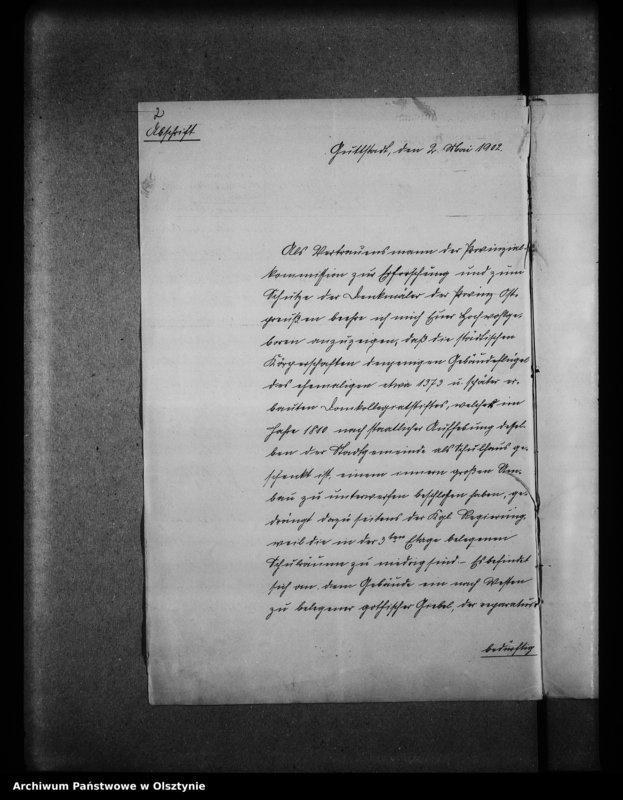 2
Abschrift
Guttstadt, den 2. Mai 1902.
Als Vertrauensmann der Provinzial-
kommission zur Erforschung und zum
Schutze der Denkmäler der Provinz Ost-
preußen beehre ich mich Euer Hochwohlge-
boren anzuzeigen, daß die städtischen
Körperschaften denjenigen Gebäudeflügel
des ehemaligen etwa 1373 u. später er-
bauten Domkollegiatstiftes, welcher im
Jahre 1810 nach staatlicher Aufhebung dessel-
ben der Stadtgemeinde als Schulhaus ge-
schenkt ist, einem innern großen Um-
bau zu unterwerfen beschlossen haben, ge-
drängt dazu seitens der Kgl. Regierung,
weil die in der 3ten Etage belegenen
Schulräume zu niedrig sind. - Es befindet
sich an dem Gebäude ein nach Westen
zu belegener gothischer Giebel, der reparatur-
bedürftig
Archiwum Państwowe w Olsztynie